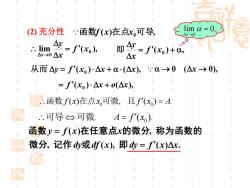 (2) 充分性 ∵函数f(x)在点x₀可导,
lim α = 0,
Δx→0
∴ lim_{Δx→0} Δy/Δx = f′(x₀), 即 Δy/Δx = f′(x₀) + α,
从而 Δy = f′(x₀)·Δx + α·(Δx), ∵ α → 0 (Δx → 0),
= f′(x₀)·Δx + o(Δx),
∴函数 f(x)在点x₀可微, 且 f′(x₀) = A.
∴可导⇔可微. A = f′(x₀).
函数 y = f(x)在任意点x的微分, 称为函数的
微分, 记作 dy或 df(x), 即 dy = f′(x)Δx.